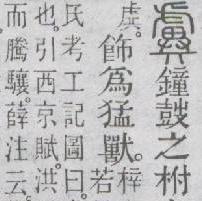 虡鐘鼓之柎
虡。飾爲猛獸。梓
若
氏考工記圖曰。
也。引西京賦。洪
而騰驤。薛注云。